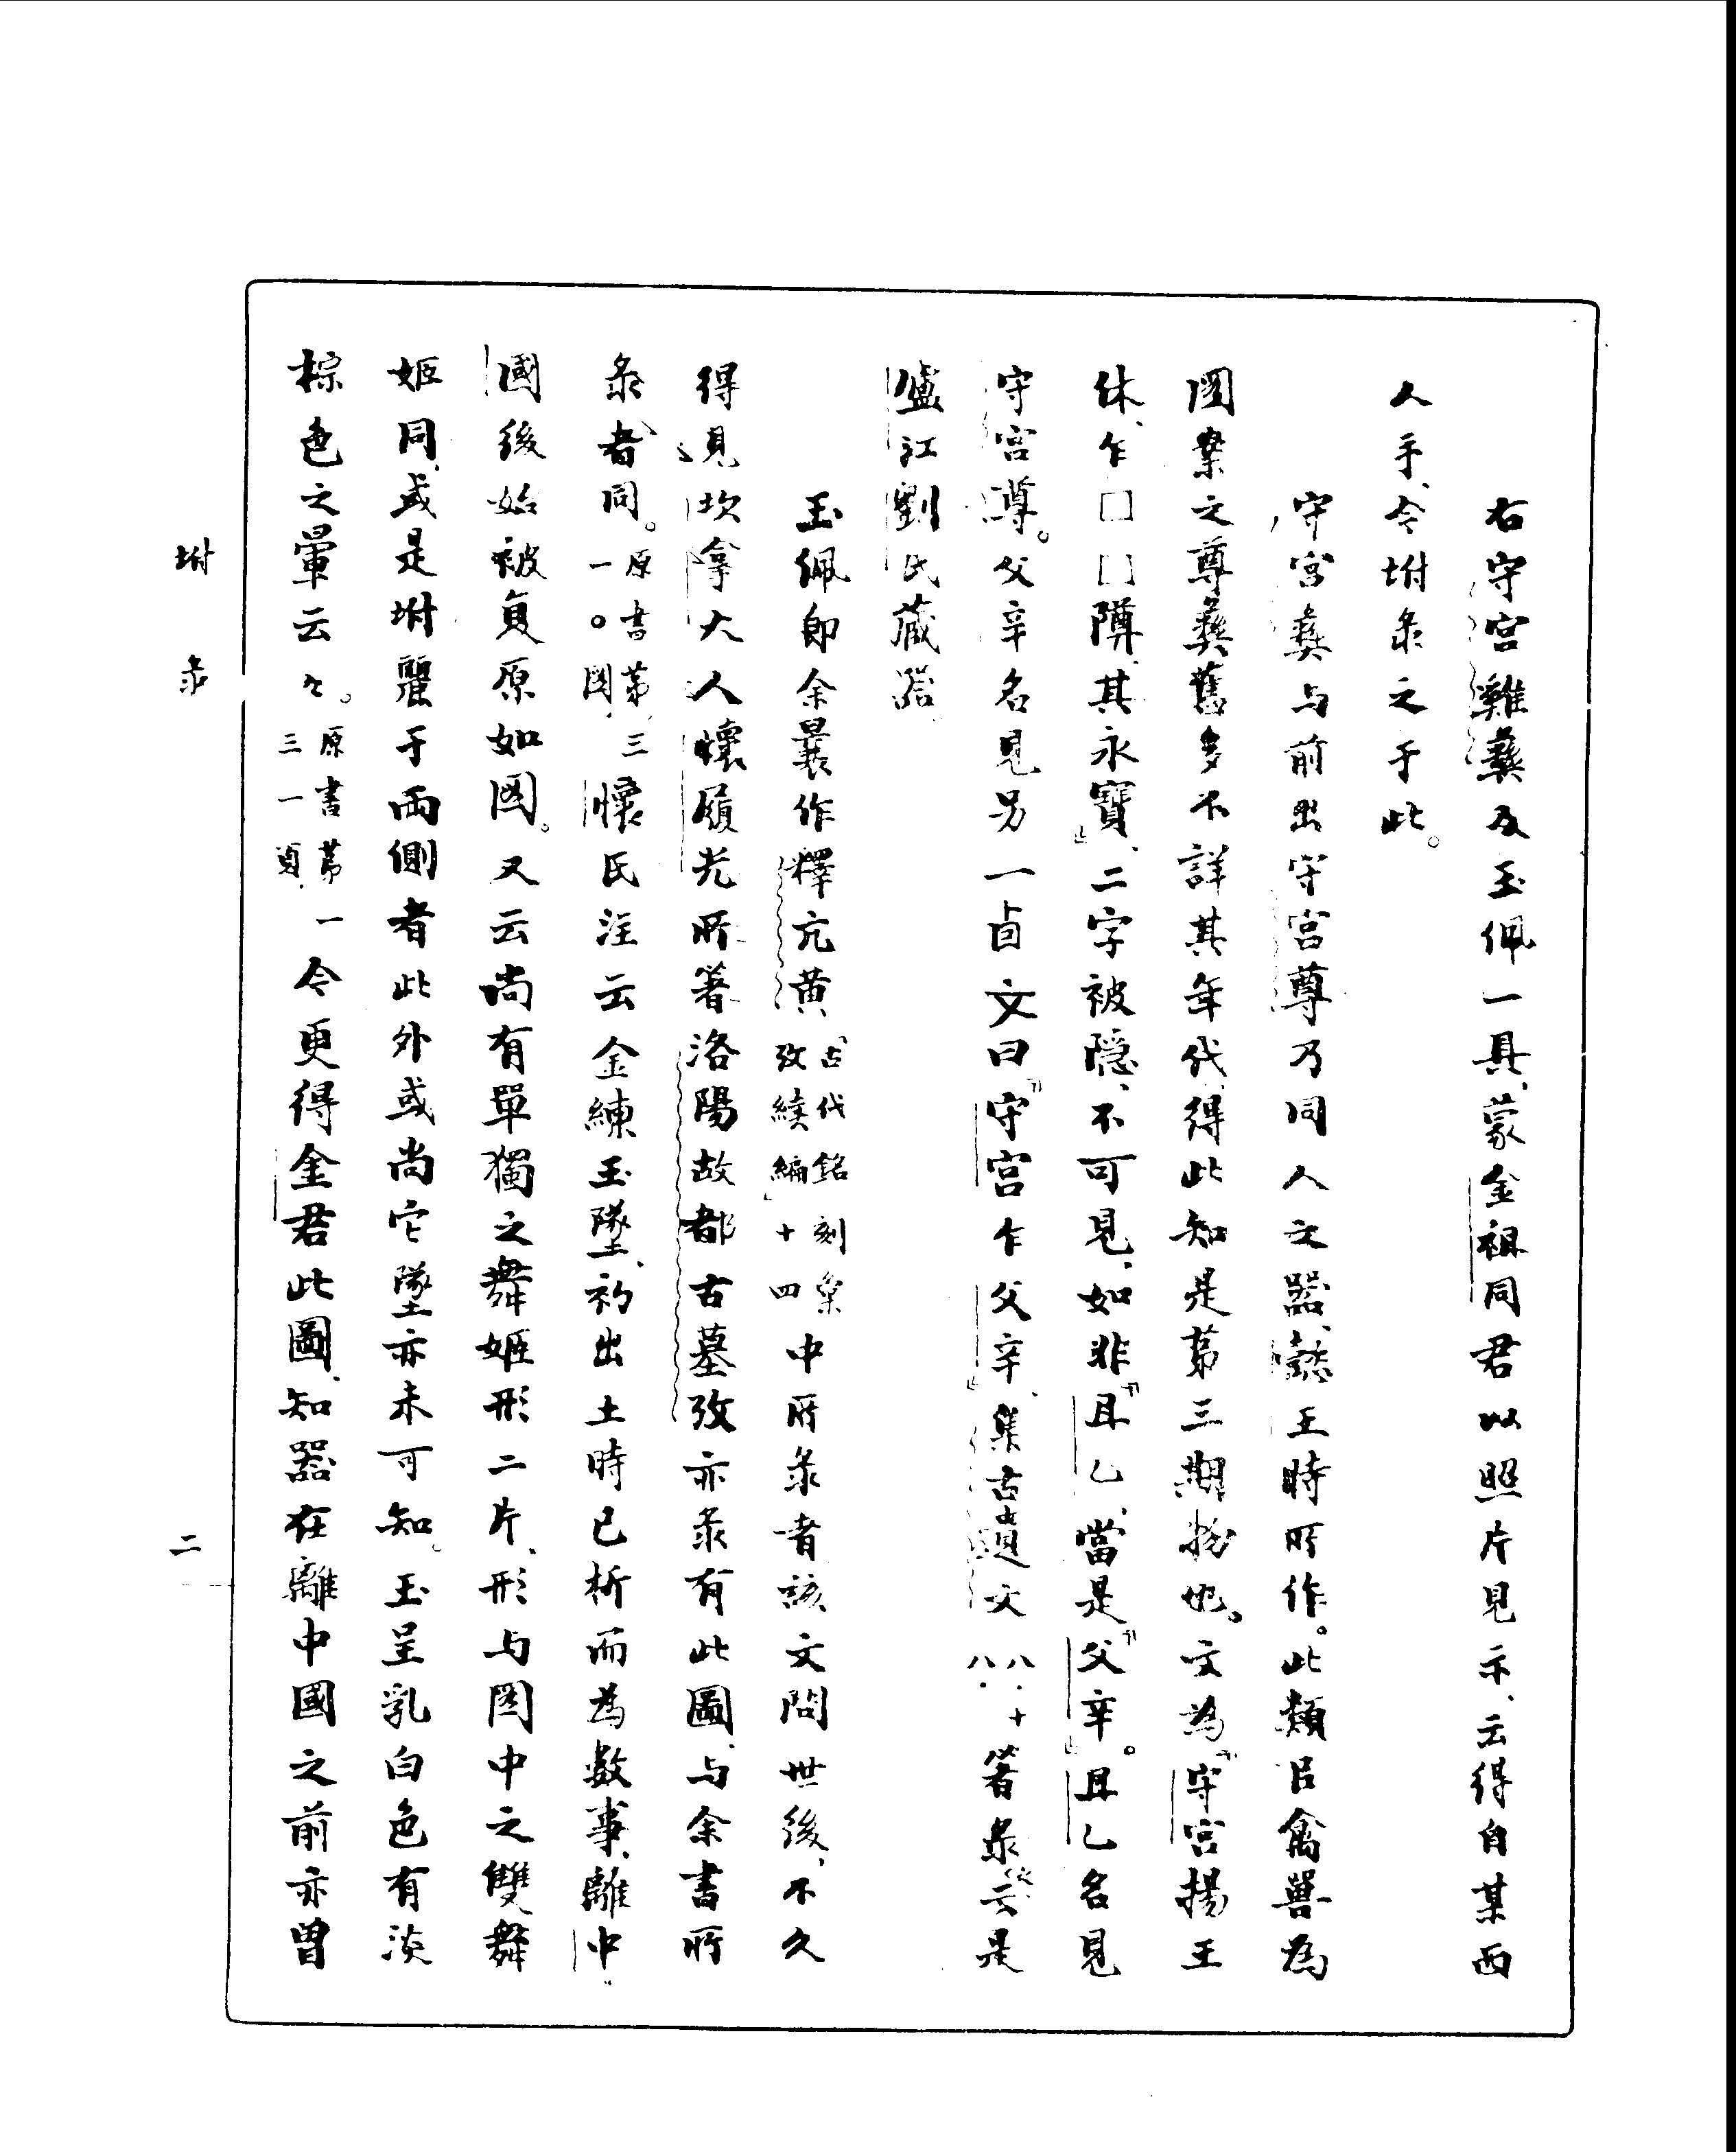 右守宮雞彝及玉佩一具、蒙金祖同君以照片見示、云得自某西
人手、今坿彔之于此。
守宮彝与前出守宮尊乃同人之器、懿王時所作。此類㠯禽獸為
圖案之尊彝舊多不詳其年代、得此知是苐三期物也。文為「守宮揚王
休、乍□□䵼、其永寶」、二字被隱、不可見、如非「且乙」、當是「父辛」。且乙名見
守宮尊。父辛名見另一卣文曰「守宮乍父辛」、集古遺文八・十八・箸彔、云是
盧江劉氏藏器、
玉佩即余曩作釋亢黄、「古代銘刻彙攷續編」十四中所彔者該文問世後、不久
得見坎拿大人懷履光所箸洛陽故都古墓攷亦彔有此圖、与余書所
彔者同。原書苐三一〇圖、懷氏注云金練玉墜、初出土時已析而為數事、離中
國後始被復原如圖。又云尚有單獨之舞姬形二片、形与圖中之雙舞
姬同、或是坿麗于兩側者此外或尚它墜亦未可知。玉呈乳白色有淡
棕色之暈云々。原書苐一三一頁、今更得金君此圖、知器在離中國之前亦曾
坿彔
二